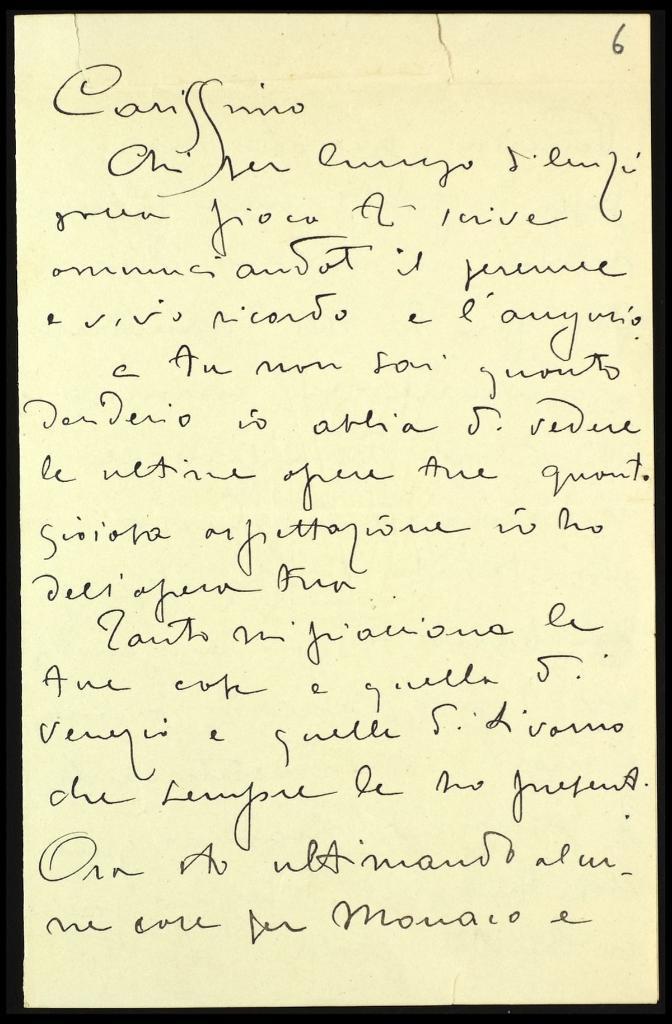 6
Carissimo
Chi per lungo silenzi
pare fioco ti scrive
annunciandoti il perenne
e vivo ricordo e l'augurio.
e tu non sai quanto
desiderio io abbia di vedere
le ultime opere tue quanta
gioiosa aspettazione io ho
dell'opera tua
Tanto mi piacciono le
tue cose e quella di
Venezia e quelle di Livorno
che sempre le ho presenti.
Ora sto ultimando alcu-
ne cose per Monaco e